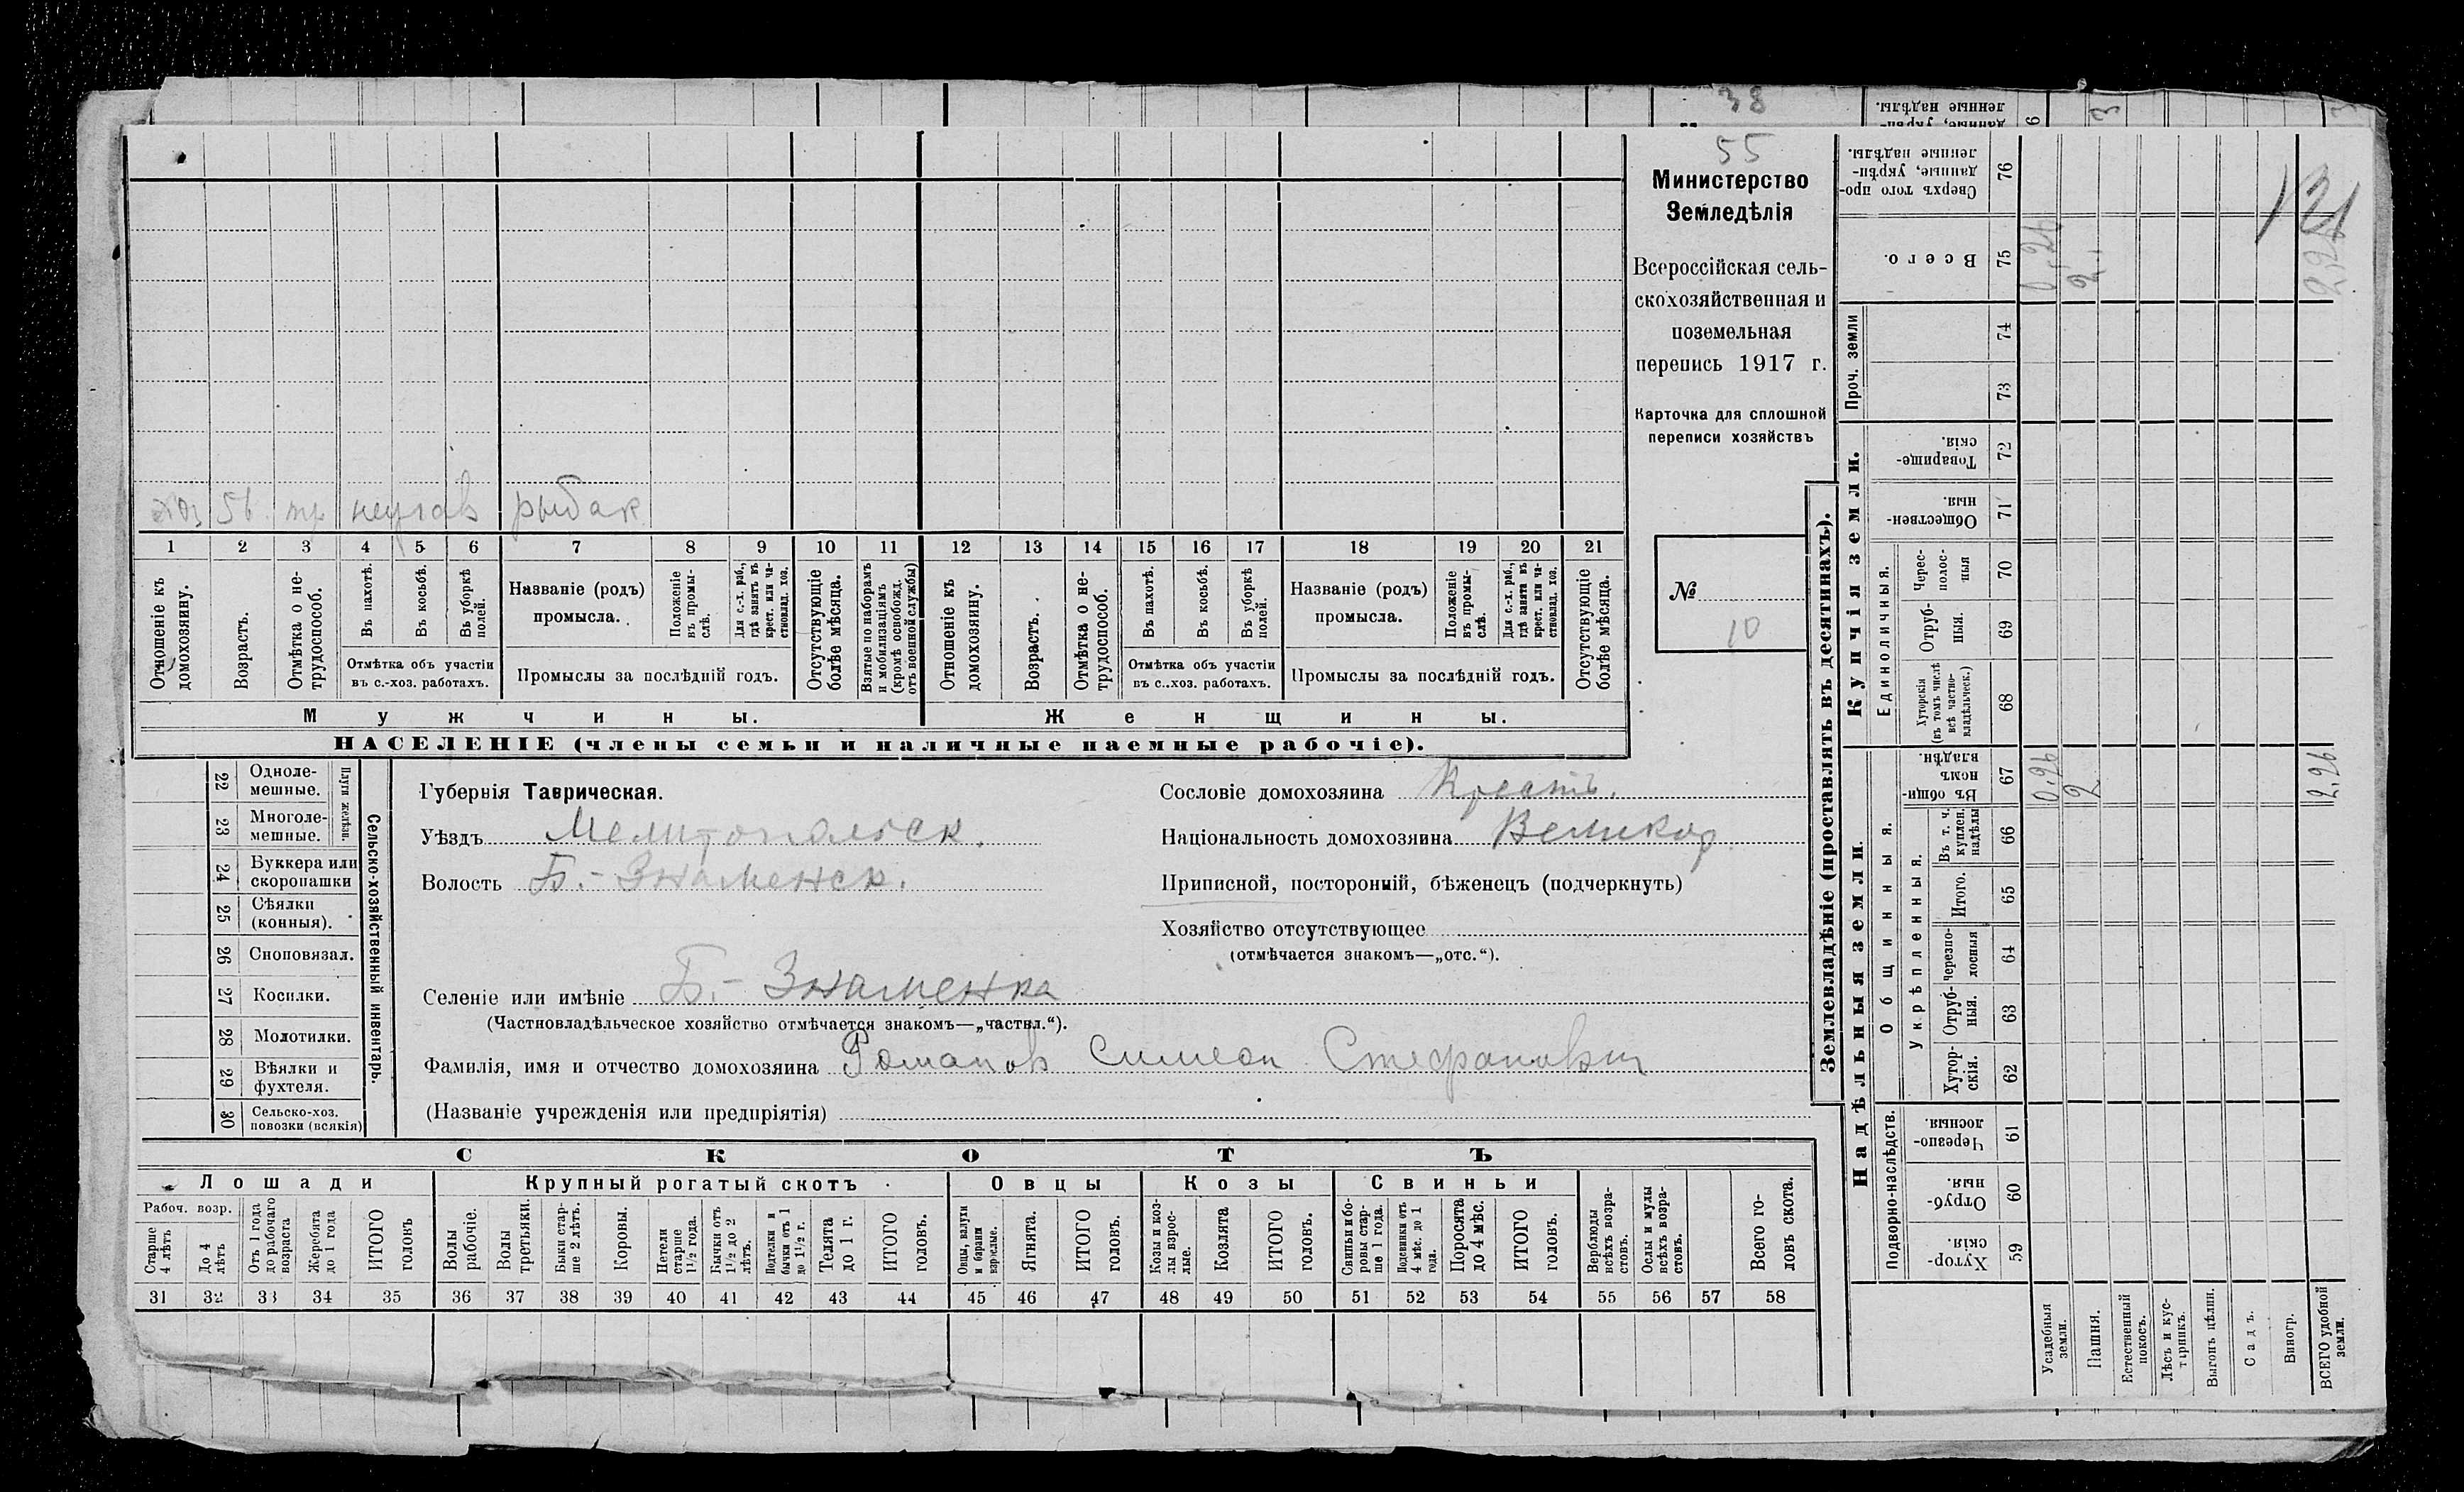 38
55
Министерство
Земледѣлія
Всероссійская сель-
скохозяйственная и
поземельная
перепись 1917 г.
Карточка для сплошной
переписи хозяйствъ
№
10
хоз 56. тр неучав рыбак
1 2 3 4 5 6 7 8 9 10 11 12 13 14 15 16 17 18 19 20 21
Отношеніе къ домохозяину.
Возрастъ.
Отмѣтка о не-трудоспособ.
Въ пахотѣ.
Въ косьбѣ.
Въ уборкѣ полей.
Отмѣтка объ участіи
въ с.-хоз. работахъ.
Названіе (родъ)
промысла.
Положеніе въ промы-слѣ.
Для с.-х. раб., гдѣ занятъ въ крест. или ча-стновлад. хоз.
Промыслы за послѣдній годъ.
Отсутствующіе болѣе мѣсяца.
Взятые по наборамъ и мобилизаціямъ (кромѣ освобожд. отъ военной службы)
Отношеніе къ домохозяину.
Возрастъ.
Отмѣтка о не-трудоспособ.
Въ пахотѣ.
Въ косьбѣ.
Въ уборкѣ полей.
Отмѣтка объ участіи
въ с.-хоз. работахъ.
Названіе (родъ)
промысла.
Положеніе въ промы-слѣ.
Для с.-х. раб., гдѣ занята въ крест. или ча-стновлад. хоз.
Промыслы за послѣдній годъ.
Отсутствующіе болѣе мѣсяца.
Мужчины.
Женщины.
НАСЕЛЕНІЕ (члены семьи и наличные наемные рабочіе).
Сельско-хозяйственный инвентарь.
Плуги желѣзн.
22 Одноле-мешные.
23 Многоле-мешные.
24 Буккера или скоропашки
25 Сѣялки (конныя).
26 Сноповязал.
27 Косилки.
28 Молотилки.
29 Вѣялки и фухтеля.
30 Сельско-хоз. повозки (всякія)
Губернія Таврическая.
Уѣздъ Мелитопольск.
Волость Б.-Знаменск.
Сословіе домохозяина Крестъ.
Національность домохозяина Великор
Приписной, посторонній, бѣженецъ (подчеркнуть)
Хозяйство отсутствующее
(отмѣчается знакомъ—„отс.“).
Селеніе или имѣніе Б.-Знаменка
(Частновладѣльческое хозяйство отмѣчается знакомъ—„частвл.“).
Фамилія, имя и отчество домохозяина Романов Симеон Стефанович
(Названіе учрежденія или предпріятія)
СКОТЪ
Лошади
Крупный рогатый скотъ
Овцы
Козы
Свиньи
Рабоч. возр.
Старше 4 лѣтъ
До 4 лѣтъ
Отъ 1 года до рабочаго возраста
Жеребята до 1 года
ИТОГО головъ
Волы рабочіе.
Волы третьяки.
Быки стар-ше 2 лѣтъ.
Коровы.
Нетели старше 1½ года.
Бычки отъ 1½ до 2 лѣтъ.
Подтелки и бычки отъ 1 до 1½ г.
Телята до 1 г.
ИТОГО головъ.
Овцы, валухи и бараны взрослые.
Ягнята.
ИТОГО головъ.
Козы и коз-лы взрос-лые.
Козлята
ИТОГО головъ.
Свиньи и бо-ровы стар-ше 1 года.
Подсвинки отъ 4 мѣс. до 1 года.
Поросята до 4 мѣс.
ИТОГО головъ.
Верблюды всѣхъ возра-стовъ.
Ослы и мулы всѣхъ возра-стовъ.
Всего го-ловъ скота.
31 32 33 34 35 36 37 38 39 40 41 42 43 44 45 46 47 48 49 50 51 52 53 54 55 56 57 58
Землевладѣніе (проставлять въ десятинахъ).
Надѣльныя земли.
Купчія земли.
Проч. земли
Подворно-наслѣдств.
Общинныя.
Укрѣпленныя.
Единоличныя.
Хутор-скія. 59
Отруб-ныя. 60
Черезпо-лосныя. 61
Хутор-скія. 62
Отруб-ныя. 63
Черезпо-лосныя 64
Итого. 65
Въ т. ч. куплен. надѣлы 66
Въ общин-номъ владѣн. 67
Хуторскія (въ томъ числѣ всѣ частно-владѣльческ.) 68
Отруб-ныя. 69
Черес-полос-ныя 70
Обществен-ныя 71
Товарище-скія. 72
73
74
Всего. 75
Сверхъ того про-данные, укрѣп-ленные надѣлы. 76
Усадебныя земли.
Пашня.
Естественный покосъ.
Лѣсъ и кус-тарникъ.
Выгонъ цѣлин.
Садъ.
Виногр.
ВСЕГО удобной земли.
0,26
2
2,26
0,26
2,